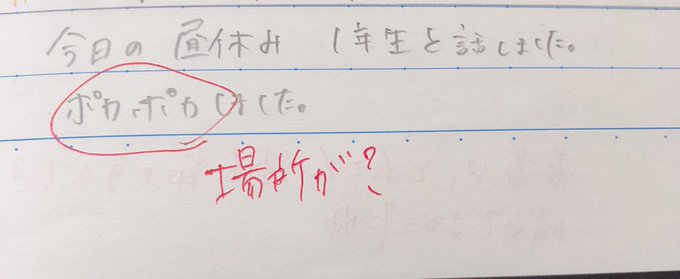 今日の昼休み 1年生と話しました。
ポカポカしました。
場所が?